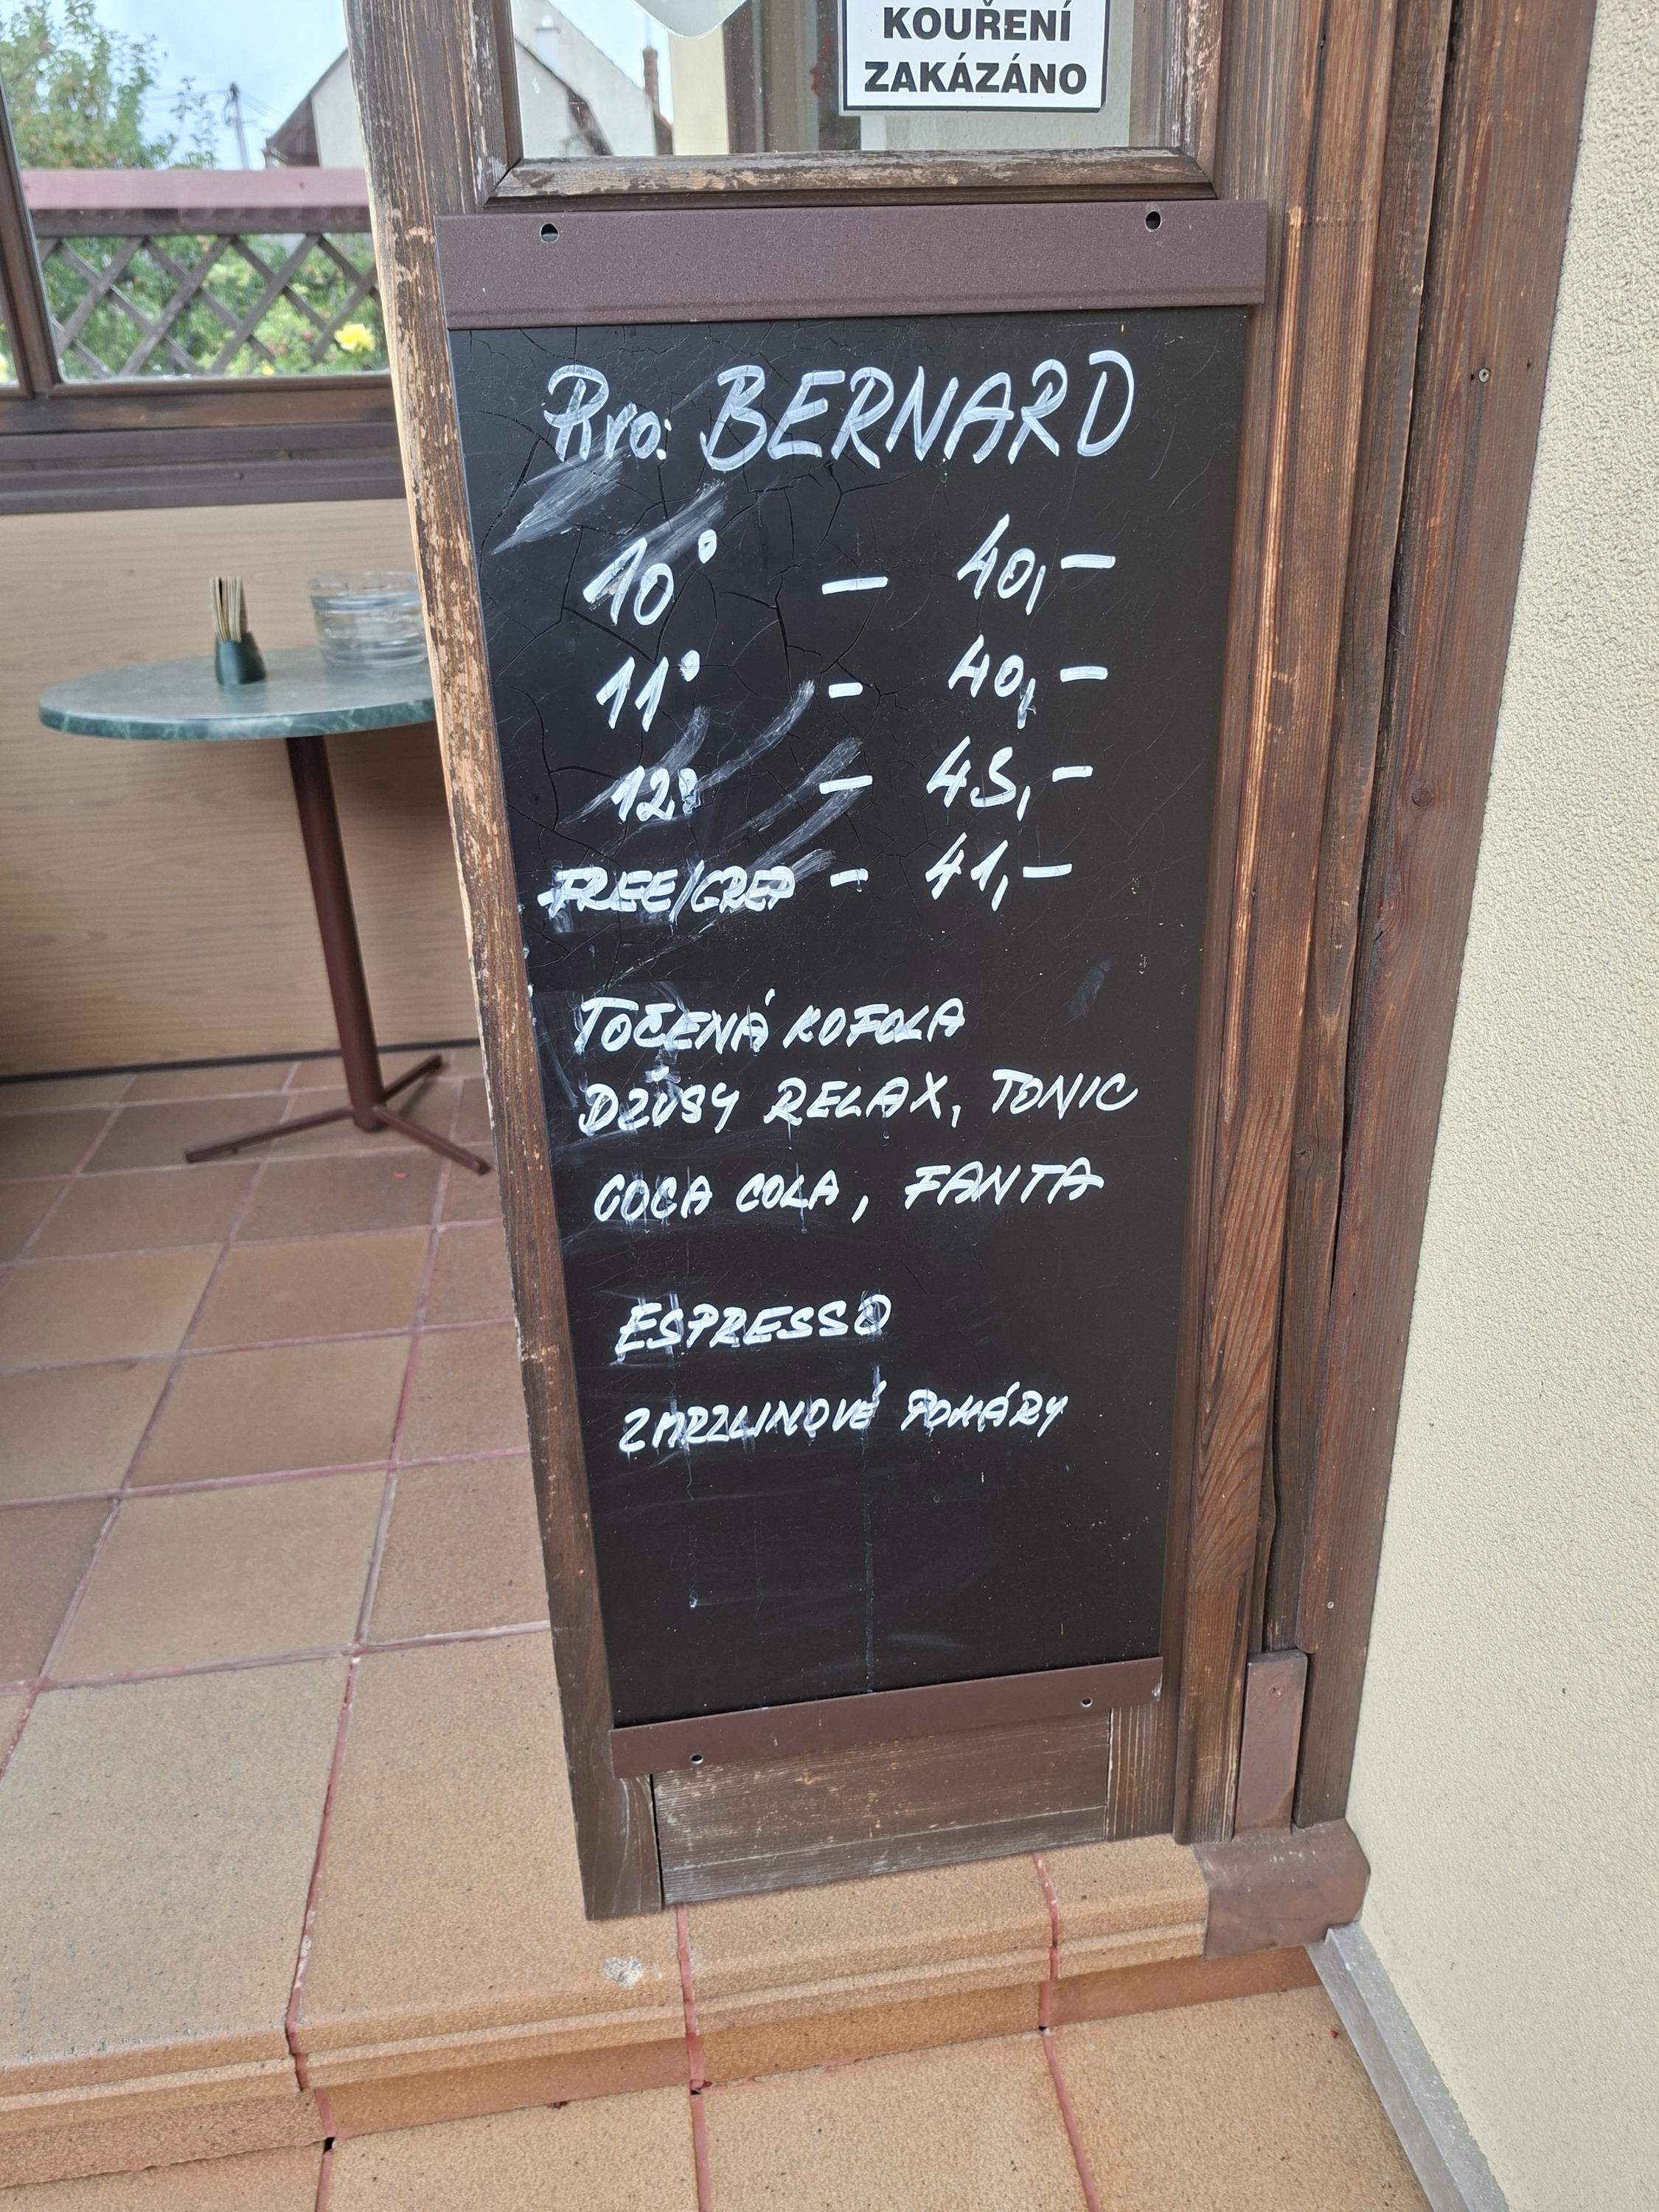 KOUŘENÍ
ZAKÁZÁNO
Pivo: BERNARD
10° - 40,-
11° - 40,-
12° - 43,-
FREE/GREP - 41,-
TOČENÁ KOFOLA
DŽŮSY RELAX, TONIC
COCA COLA, FANTA
ESPRESSO
ZMRZLINOVÉ POHÁRY